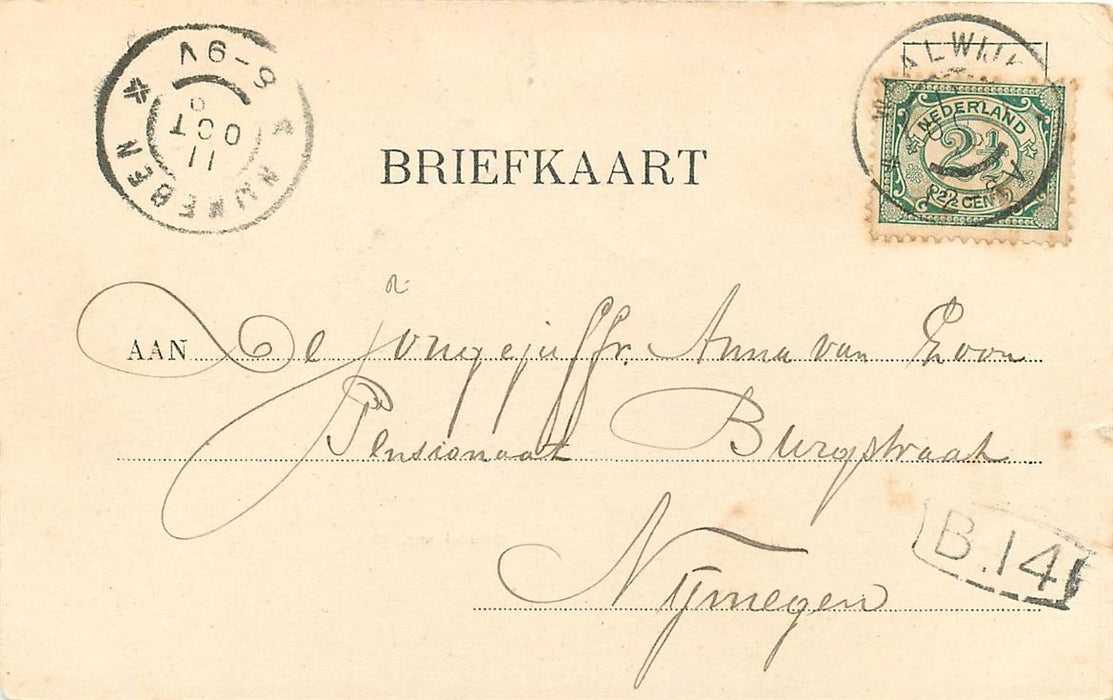 NIJMEGEN
8-9V
11 OCT
WAALWIJK
NEDERLAND
2½
2½ CENT
BRIEFKAART
AAN De Jongejuffr. Anna van Loon
Pensionaat Burgstraat
Nijmegen
B.14